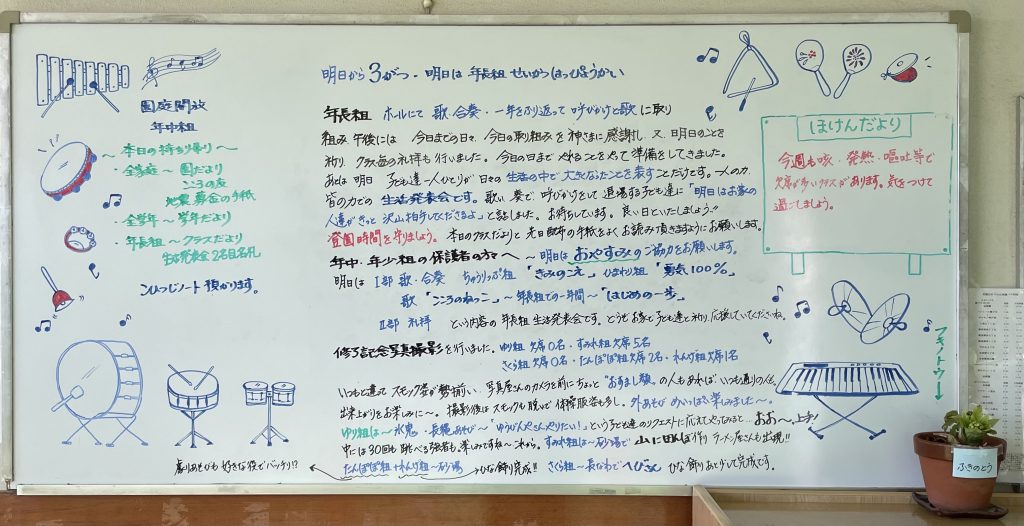 園庭開放
年中組
〜本日の持ち帰り〜
・全家庭〜園だより
こころの友
地震募金の手紙
・全学年〜学年だより
・年長組〜クラスだより
生活発表会2名目名札
こひつじノート預かります。
明日から3がつ・明日は年長組せいかつはっぴょうかい
年長組 ホールにて 歌・合奏・一年をふり返って呼びかけと歌に取り
組み 午後には 今日までの日々、今日の取り組みを神さまに感謝し 又、明日のことを
祈り クラス毎の礼拝も行いました。今日の日まで やれることをやって準備をしてきました。
あとは明日 子ども達一人ひとりが日々の生活の中で大きくなったことを表すことだけです。一人の力、
皆の力での生活発表会です。歌い、奏で、呼びかけをして退場する子ども達に「明日はお家の
人達がきっと沢山拍手してくださるよ」と話しました。お待ちしています。良い日といたしましょう!!
登園時間を守りましょう。本日のクラスだよりと先日配布の手紙をよくお読み頂きますようにお願いします。
年中・年少組の保護者の方々へ 〜明日はおやすみのご協力をお願いします。
明日は Ⅰ部 歌・合奏 ちゅうりっぷ組「きみのこえ」ひまわり組「勇気100%」
歌「こころのねっこ」〜年長組での一年間〜「はじめの一歩」
Ⅱ部 礼拝 という内容の年長組生活発表会です。どうぞお家で子ども達と祈り、応援していてくださいね。
修了記念写真撮影を行いました。ゆり組欠席0名・すみれ組欠席5名
さくら組欠席0名・たんぽぽ組欠席2名・れんげ組欠席1名
いつもと違って スモック姿が勢揃い、写真屋さんのカメラを前にちょっと"おすまし顔"の人もあれば いつも通りの人も。
出来上がりをお楽しみに〜。撮影後はスモックも脱いで体操服姿も多し。外あそびめいっぱい楽しみました〜。
ゆり組は〜氷鬼・長縄あそび〜「ゆうびんやさんやりたい!」という子ども達のリクエストに応えてやってみると…おお〜、上手!
中には30回も跳べる強者も。楽しみですね〜これから。すみれ組は〜砂場で山に田んぼ作り ラーメン屋さんも出現!!
たんぽぽ組+れんげ組〜砂場 ひな飾り完成!! さくら組〜長なわでへびさん ひな飾りあと少しで完成です。
劇あそびも好きな役でバッチリ!?
ほけんだより
今週も咳・発熱・嘔吐等で
欠席が多いクラスがあります。気をつけて
過ごしましょう。
フキノトウ
ふきのとう